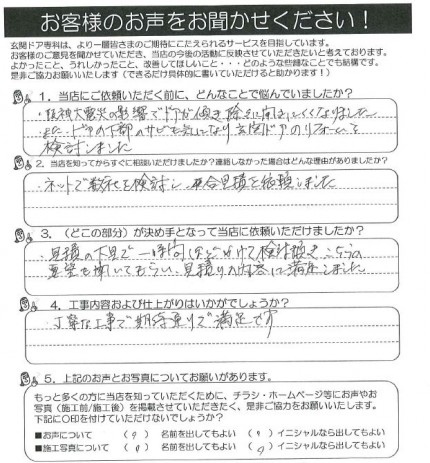 お客様のお声をお聞かせください!
玄関ドア専科は、より一層皆さまのご期待にこたえられるサービスを目指しています。
お客様のご意見を聞かせていただき、当店の今後の活動に反映させていただきたいと考えております。
よかったこと、うれしかったこと、改善してほしいこと・・・どのような些細なことでも結構です。
是非ご協力お願いいたします（できるだけ具体的に書いていただけると助かります！）
1．当店にご依頼いただく前に、どんなことで悩んでいましたか？
・阪神大震災の影響でドアが傾き 除々に閉まりにくくなりました
また、ドアの下部のサビも気になり玄関ドアのリフォームを
検討しました
2．当店を知ってからすぐに相談いただけましたか？連絡しなかった場合はどんな理由がありましたか？
・ネットで数社を検討し、見積を依頼しました
3．（どこの部分）が決め手となって当店に依頼いただけましたか？
・見積の下見で一時間ほどかけて検討頂き こちらの
要望も聞いてもらい、見積りの内容に満足しました
4．工事内容および仕上がりはいかがでしょうか？
・丁寧な工事で期待通りで満足です
5．上記のお声とお写真についてお願いがあります。
もっと多くの方に当店を知っていただくために、チラシ・ホームページ等にお声やお
写真（施工前/施工後）を掲載させていただきたく、是非ご協力をお願いいたします。
下記に○印を付けていただけないでしょうか？
■お声について （ ） 名前を出してもよい （ ） イニシャルなら出してもよい
■施工写真について （ ） 名前を出してもよい （ ） イニシャルなら出してもよい